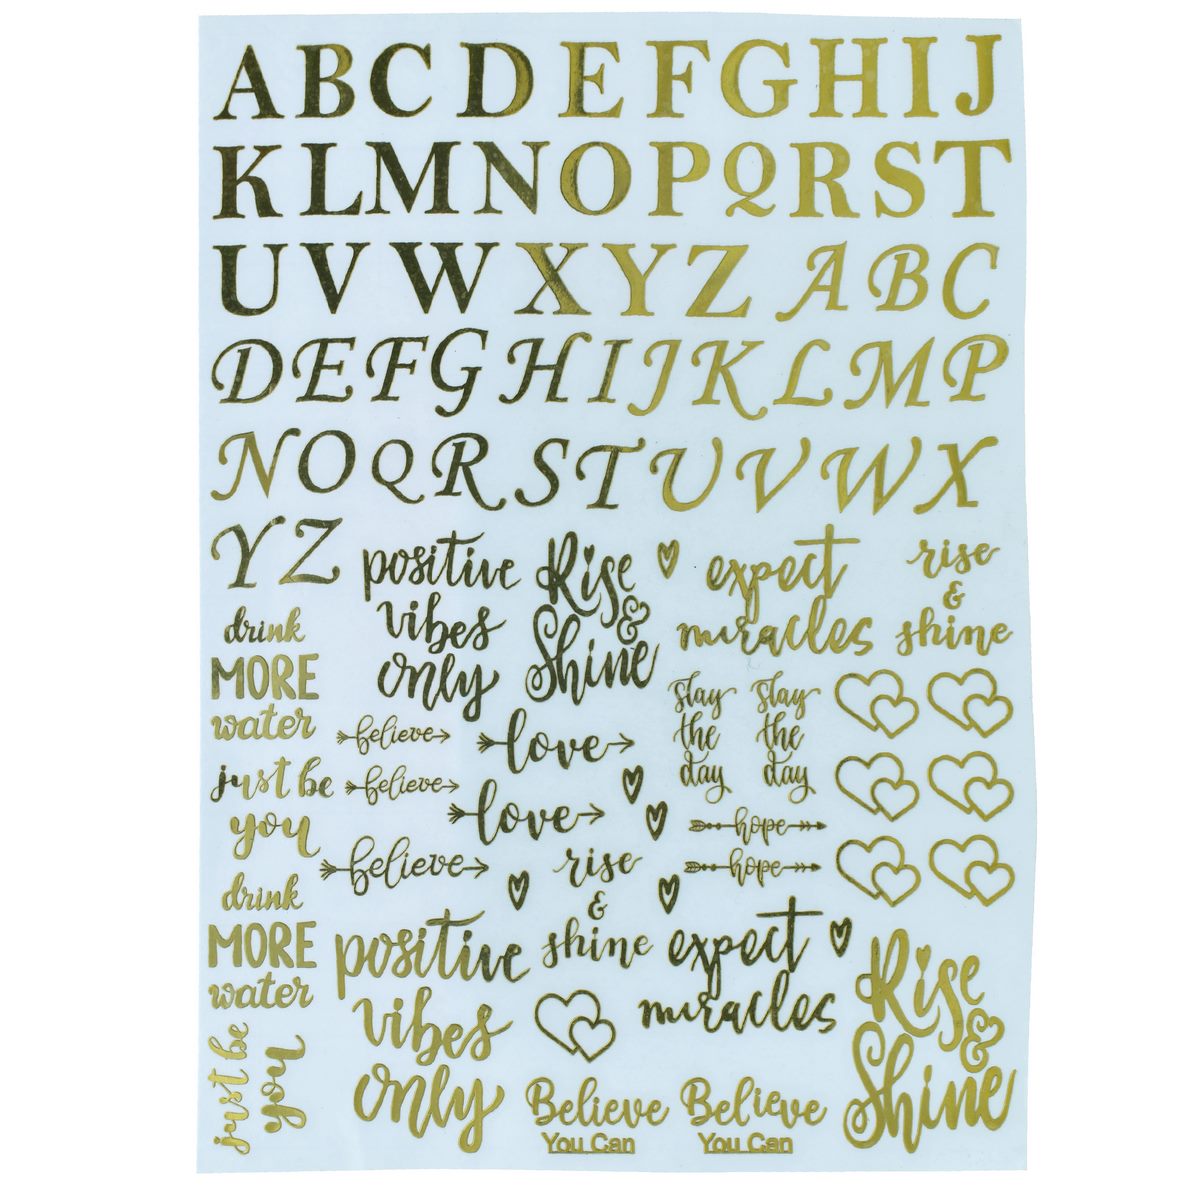 A B C D E F G H I J
K L M N O P Q R S T
U V W X Y Z A B C
D E F G H I J K L M P
N O Q R S T U V W X
Y Z
positive
vibes
only
Rise
&
Shine
expect
miracles
rise
&
shine
drink
MORE
water
believe
love
slay
the
day
slay
the
day
just be
you
believe
love
hope
believe
rise
&
shine
hope
drink
MORE
water
positive
vibes
only
expect
miracles
Rise
&
Shine
just be
you
Believe
You Can
Believe
You Can